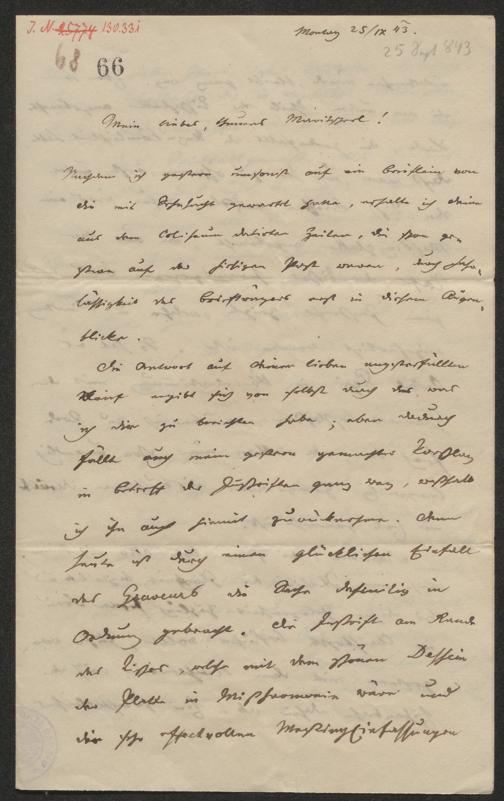 J. N. 25774 130.331
68 66
Montag 25/IX 43.
25 Sept 843
Mein liebes, theures !
Nachdem ich gestern umsonst auf ein Brieflein von
dir mit Sehnsucht gewartet hatte, erhalte ich deine
aus dem Coliseum datirten Zeilen, die schon ge-
stern auf der hiesigen Post waren, durch Fahr-
lässigkeit des Briefträgers erst in diesem Augen-
blicke.
Die Antwort auf deinen lieben angsterfüllten
Brief ergibt sich von selbst durch das was
ich dir zu berichten habe; eben dadurch
fällt auch mein gestern gemachter Vorschlag
in betreff der Inschriften ganz weg, weßhalb
ich ihn auch hiemit zurücknehme. Denn
heute ist durch einen glücklichen Einfall
des Graveurs die Sache definitiv in
Ordnung gebracht. Die Inschrift am Rande
des Tisches, welche mit dem schönen Dessein
der Platte in Mißharmonie wäre und
die so effectvollen Messing Einfassungen